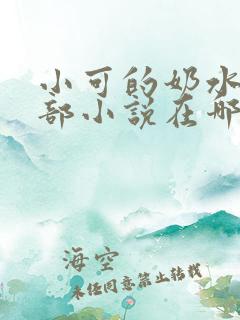 小可的奶水
部小说在哪
海空
未经同意禁止转载